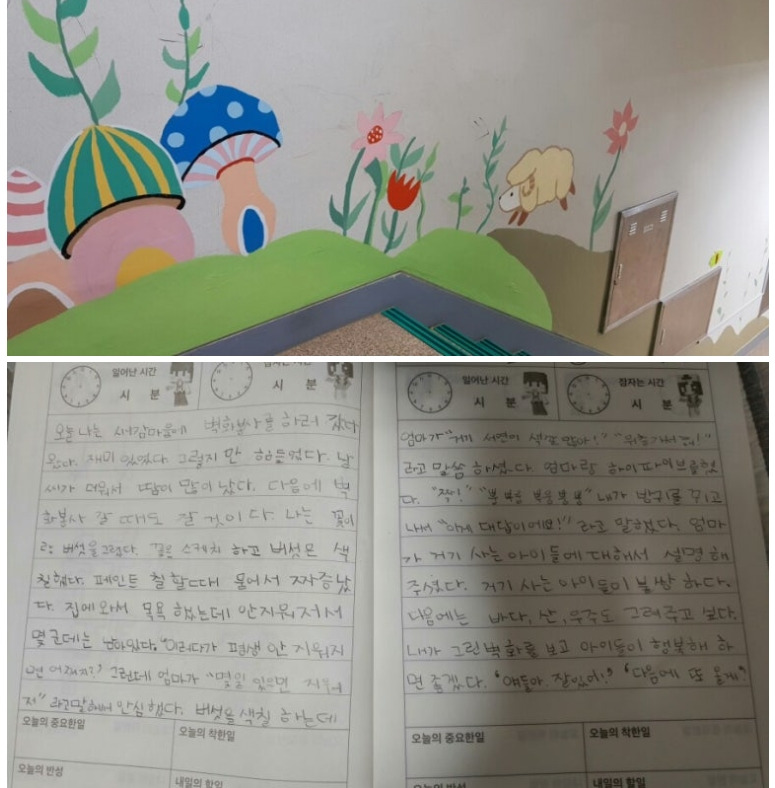 일어난 시간
시 분
잠자는 시간
시 분
오늘 나는 벽화봉사를 하러 갔다
왔다. 재미 있었다. 그렇지만 힘들었다. 날
씨가 더워서 땀이 많이 났다. 다음에 벽
화봉사 갈 때도 갈 것이다. 나는 꽃이
랑 버섯을 그렸다. 꽃은 스케치 하고 버섯은 색
칠했다. 페인트 칠 할때 묻어서 짜증났
다. 집에 와서 목욕 했는데 안지워져서
몇 군데는 남아있다. "이러다가 평생 안 지워지
면 어쩌지?" 그런데 엄마가 "몇일 있으면 지워
져" 라고말해서 안심 했다. 버섯을 색칠 하는데
오늘의 중요한일
오늘의 착한일
오늘의 반성
내일의 할일
일어난 시간
시 분
잠자는 시간
시 분
엄마가 "거기 서연이 색깔 맞아!"
라고 말씀 하셨다. 엄마랑 하이파이브를 했
다. "짝!" 내가 방귀를 뀌고
나서 "이게 대답이에요!" 라고 말했다. 엄마
가 거기 사는 아이들에 대해서 설명 해
주셨다. 거기 사는 아이들이 불쌍 하다.
다음에는 바다, 산, 우주도 그려 주고 싶다.
내가 그린 벽화를 보고 아이들이 행복해 하
면 좋겠다. "얘들아. 잘있어!" "다음에 또 올게"
오늘의 중요한일
오늘의 착한일
오늘의 반성
내일의 할일